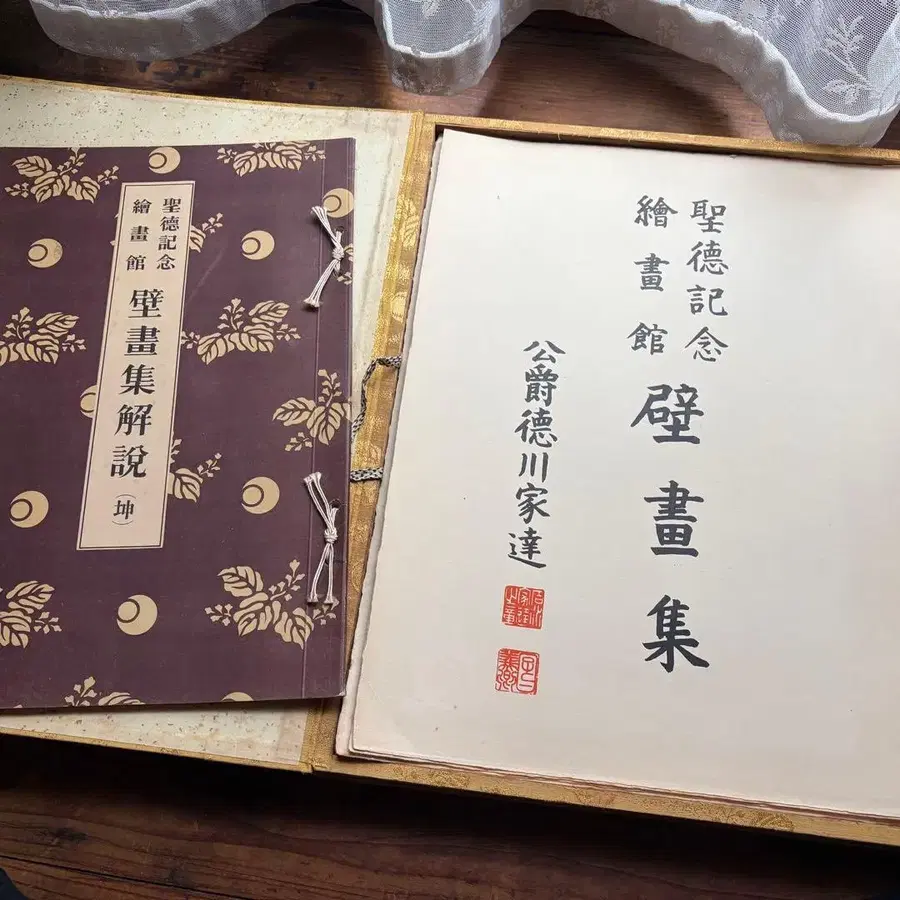 聖德記念
繪畫館
壁畫集解說
(坤)
聖德記念
繪畫館
壁畫集
公爵德川家達